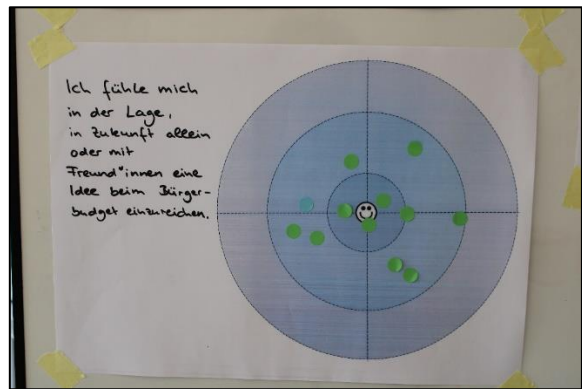 Ich fühle mich
in der Lage,
in Zukunft allein
oder mit
Freund*innen eine
Idee beim Bürger-
budget einzureichen.